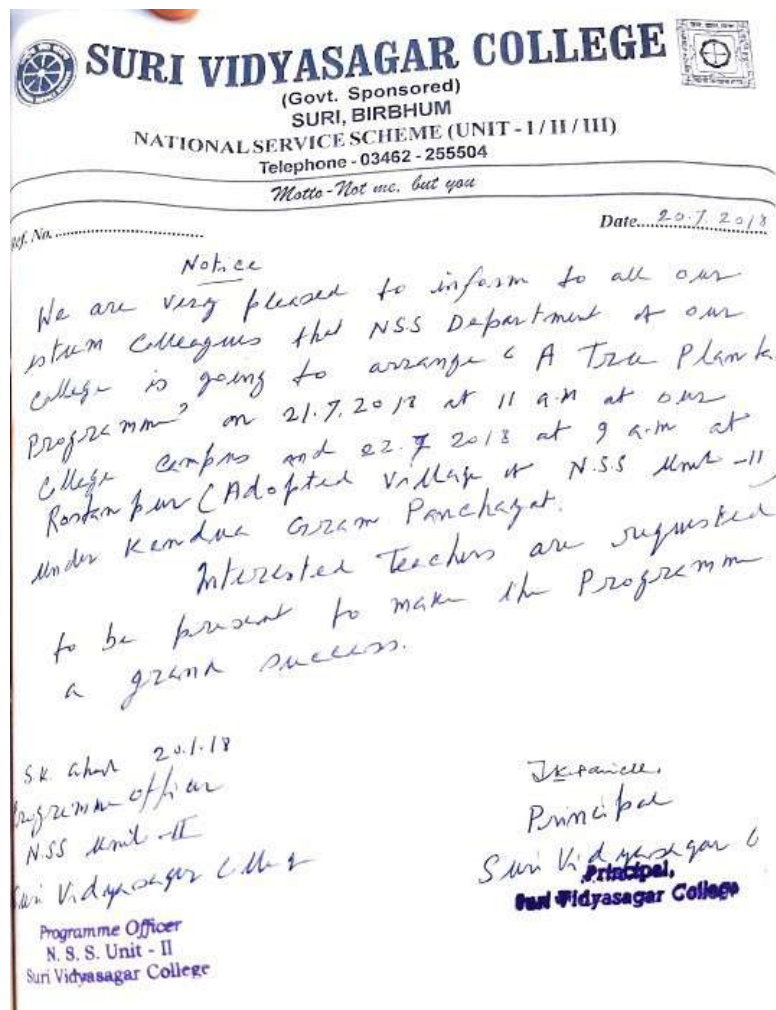 SURI VIDYASAGAR COLLEGE
(Govt. Sponsored)
SURI, BIRBHUM
NATIONAL SERVICE SCHEME (UNIT - I / II / III)
Telephone - 03462 - 255504
Motto - Not me, but you
ef. No. Date 20.7.2018
Notice
We are very pleased to inform to all our
colleagues that NSS Department of our
College is going to arrange " A Tree Planta
Programme" on 21.7.2018 at 11 a.m at our
College campus and 22.7 2018 at 9 a.m at
(Adopted Village of N.S.S Unit -II)
Under Kendua Gram Panchayat.
Interested Teachers are requested
to be present to make the Programme
a grand success.
S.K. 20.7.18
rogramme Officer
NSS Unit -II
Suri Vidyasagar College
Programme Officer
N. S. S. Unit - II
Suri Vidyasagar College
Principal
Suri Vidyasagar C
Principal,
Suri Vidyasagar College